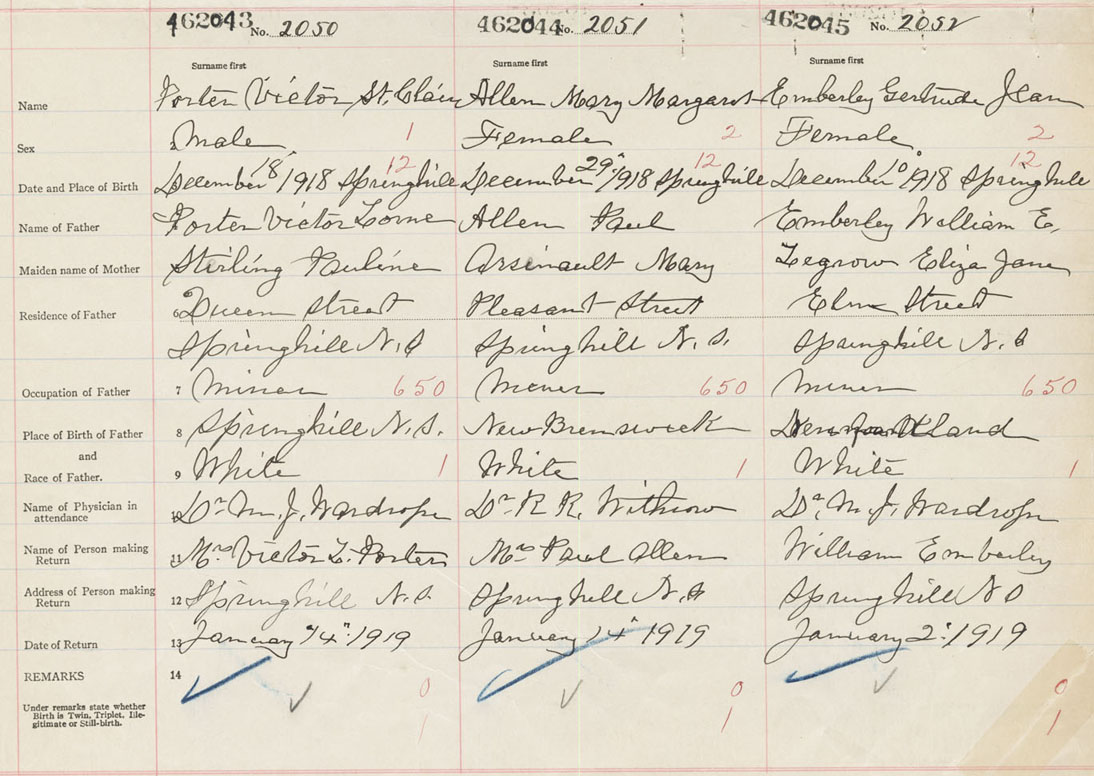 462043 No. 2050 462044 No. 2051 462045 No. 2052
Surname first Surname first Surname first
Name Porter Victor St. Clair Allen Mary Margaret Emberley Gertrude Jean
Sex 2 Male 1 Female 2 Female 2
12 12 12
Date and Place of Birth December 18" 1918 Springhill December 29" 1918 Springhill December 10" 1918 Springhill
Name of Father Porter Victor Lorne Allen Paul Emberley William E.
Maiden name of Mother Stirling Pauline Arsinault Mary Legrow Eliza Jane
Residence of Father 6 Queen Street Pleasant Street Elm Street
Springhill N.S Springhill N.S. Springhill N.S
Occupation of Father 7 Miner 650 Miner 650 Miner 650
Place of Birth of Father 8 Springhill N.S. New Brunswick Newfoundland
and
Race of Father. 9 White 1 White 1 White 1
Name of Physician in attendance 10 Dr M. J. Wardrope Dr R R. Withrow Dr. M. J. Wardrope
Name of Person making Return 11 Mrs Victor L. Porter Mrs Paul Allen William Emberley
Address of Person making Return 12 Springhill N.S. Springhill N.S Springhill N S
Date of Return 13 January "14": 1919 January 14" 1919 January 2": 1919
REMARKS 14
0 0 0
Under remarks state whether
Birth is Twin, Triplet, Ille-
gitimate or Still-birth. 1 1 1